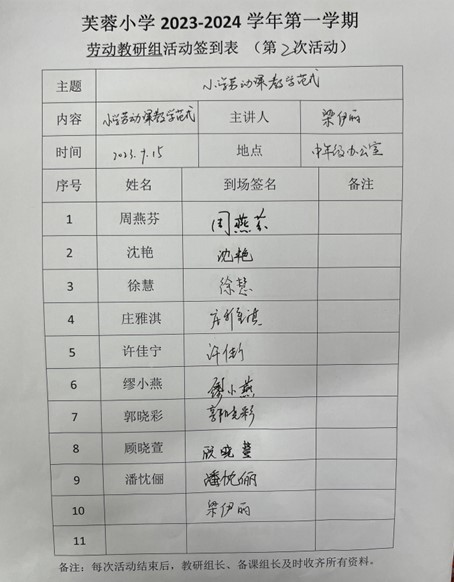 芙蓉小学 2023-2024 学年第一学期
劳动教研组活动签到表 （第 2 次活动）
主题 小学劳动课教学范式
内容 小学劳动课教学范式 主讲人 梁伊丽
时间 2023.9.15 地点 中年级办公室
序号 姓名 到场签名 备注
1 周燕芬 周燕芬
2 沈艳 沈艳
3 徐慧 徐慧
4 庄雅淇 庄雅淇
5 许佳宁 许佳宁
6 缪小燕 缪小燕
7 郭晓彩 郭晓彩
8 顾晓萱 顾晓萱
9 潘忱俪 潘忱俪
10 梁伊丽
11
备注：每次活动结束后，教研组长、备课组长及时收齐所有资料。